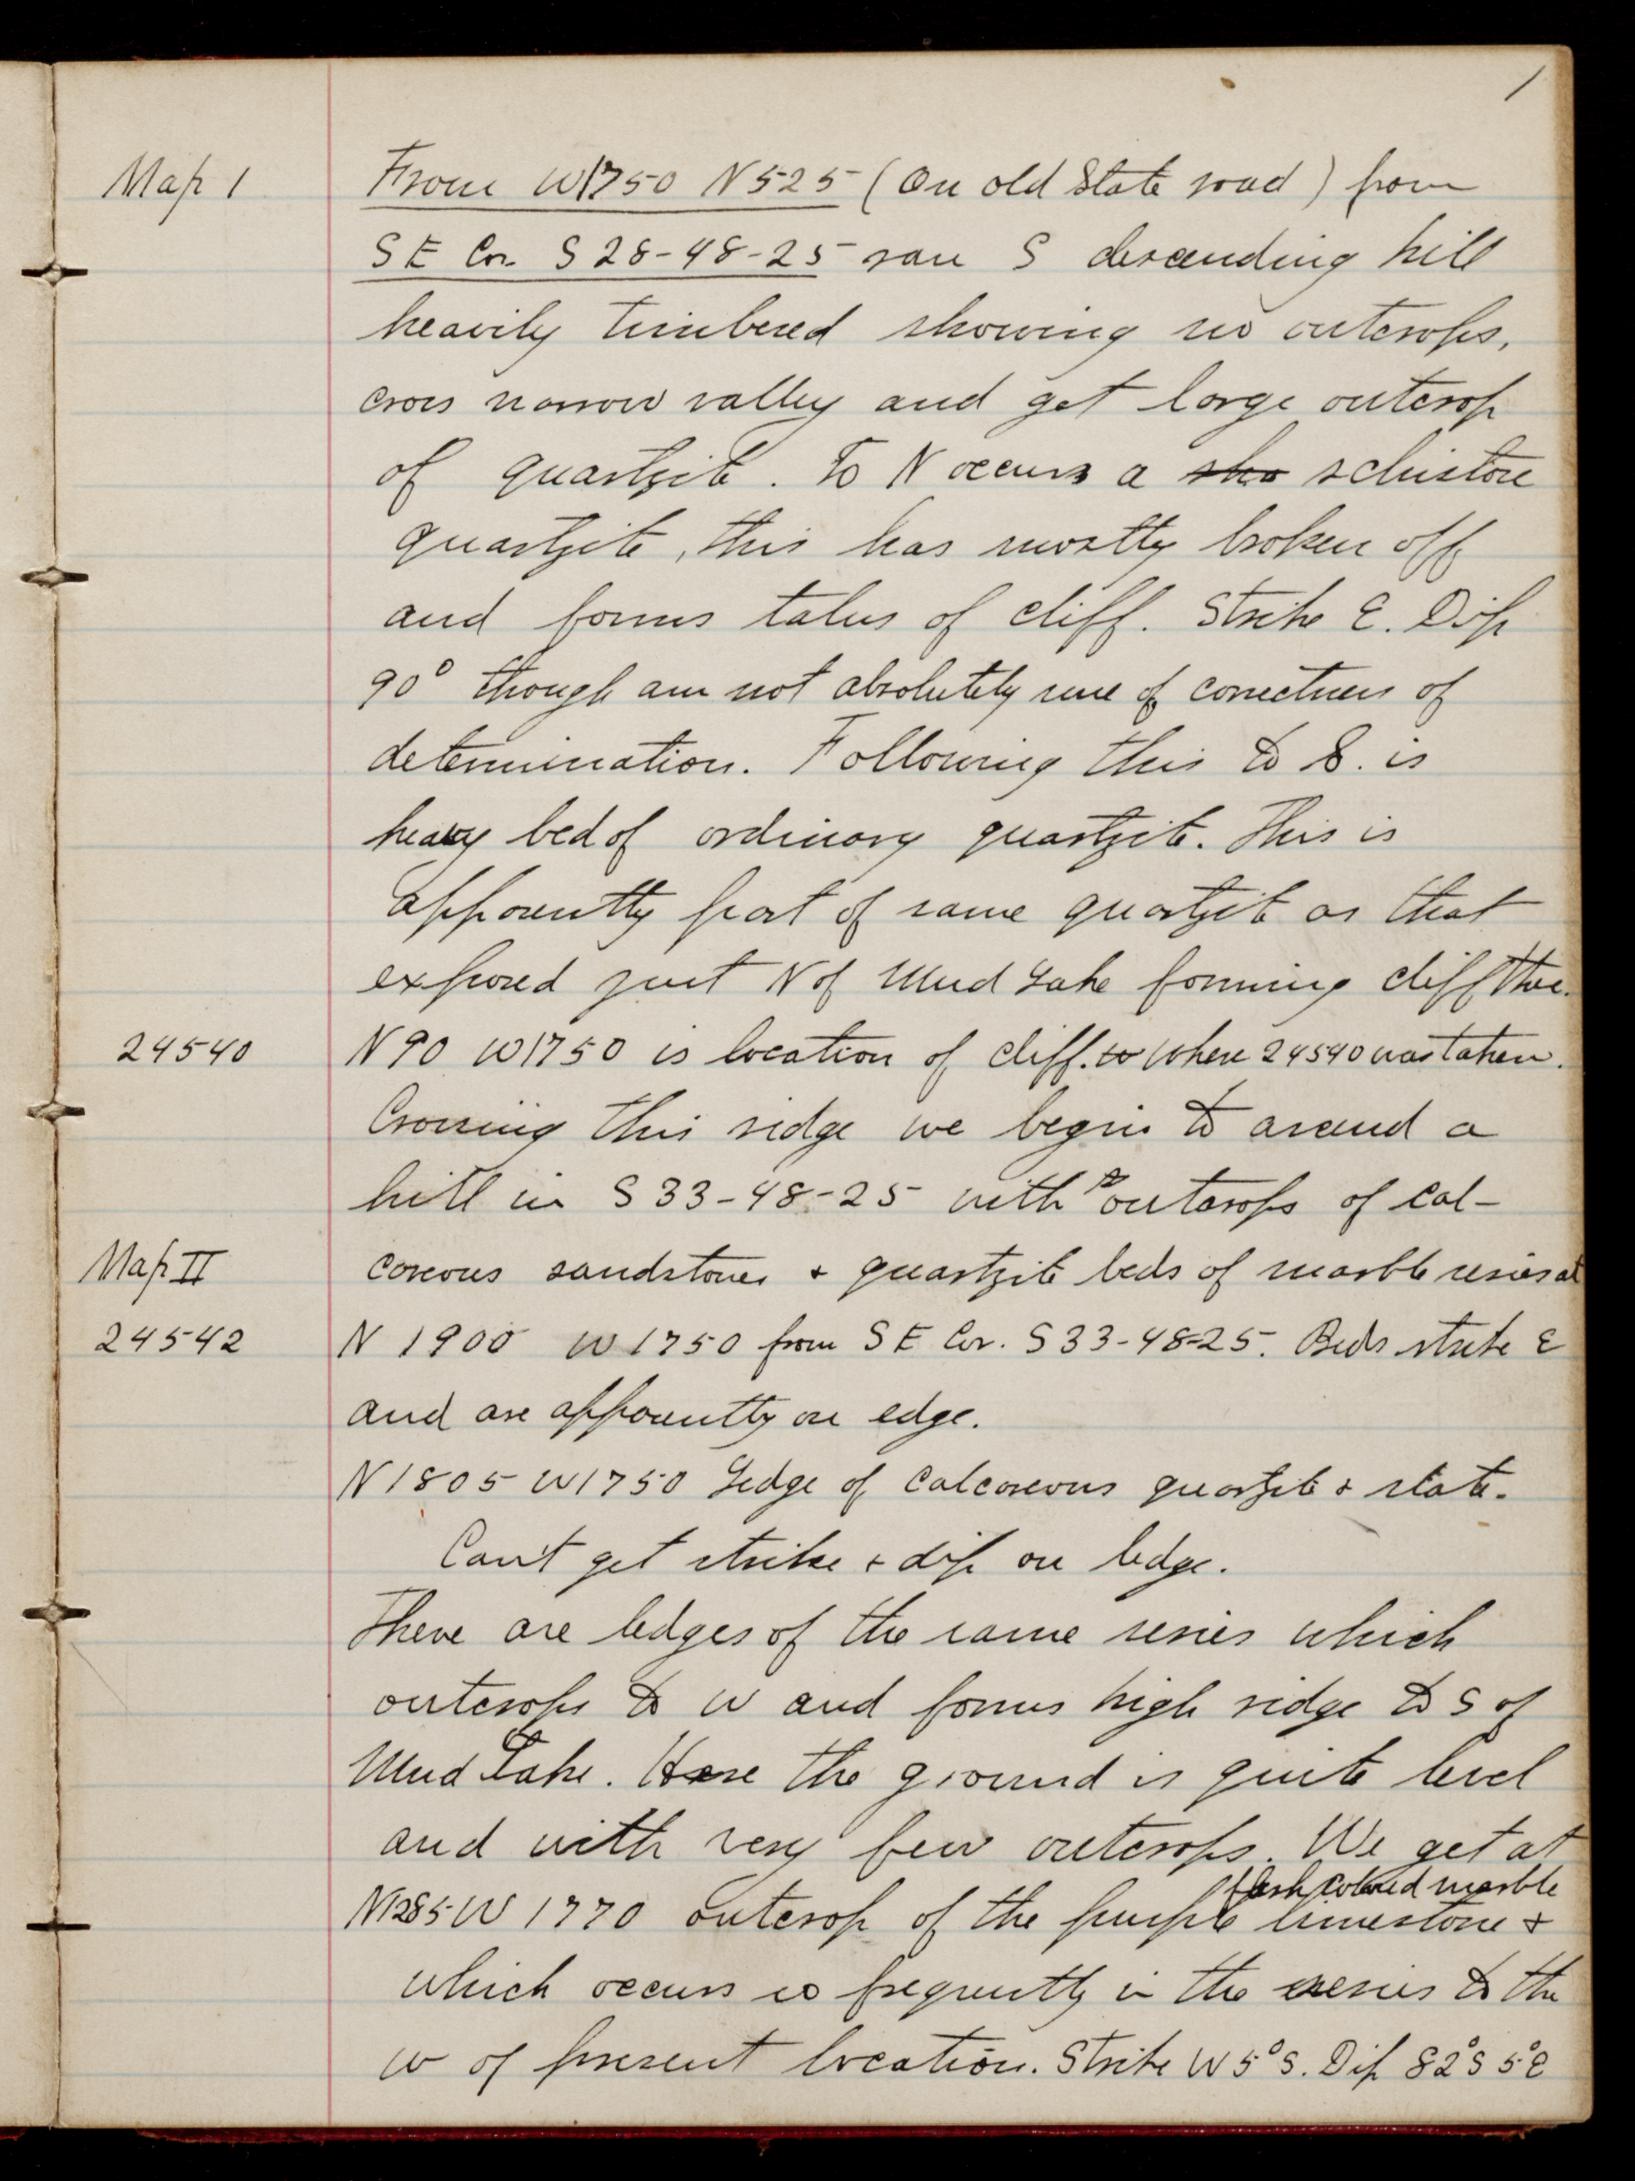 1
Map 1 From W1750 N525 (On old State road) from
S E Cor. S 28-48-25 ran S descending hill
heavily timbered showing no outcrops,
cross narrow valley and get large outcrop
of quartzite. To N occurs a sho schistose
quartzite, this has mostly broken off
and forms talus of cliff. Strike E. Dip
90° though am not absolutely sure of correctness of
determination. Following this to S. is
heavy bed of ordinary quartzite. This is
apparently part of same quartzite as that
exposed just N of Mud Lake forming cliff
24540 N90 W1750 is location of cliff. Where 24540 was taken.
Crossing this ridge we begin to ascend a
hill in S 33-48-25 with outcrops of cal-
Map II careous sandstones & quartzite beds of marble series at
24542 N 1900 W 1750 from S E Cor. S 33-48-25. Beds strike E
and are apparently on edge.
N1805 W1750 Ledge of Calcareous quartzite & slate.
Can't get strike & dip on ledge.
There are ledges of the same series which
outcrops to W and forms high ridge to S of
Mud Lake. Here the ground is quite level
and with very few outcrops. We get at
flesh colored marble
N1285 W 1770 outcrop of the purple limestone &
which occurs so frequently in the series to the
W of present location. Strike W 5° S. Dip 82° S 5° E